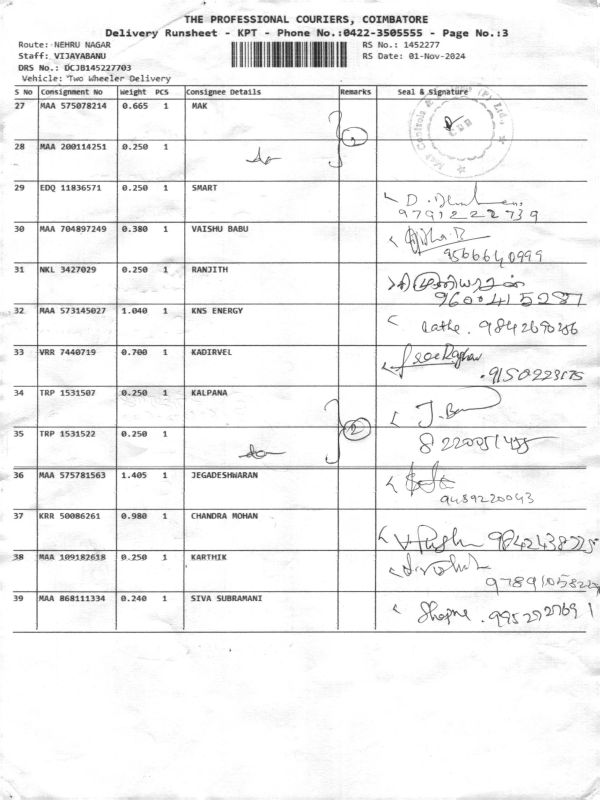 THE PROFESSIONAL COURIERS, COIMBATORE
Delivery Runsheet - KPT - Phone No.:0422-3505555 - Page No.:3
Route: NEHRU NAGAR RS No.: 1452277
Staff: VIJAYABANU RS Date: 01-Nov-2024
DRS No.: DCJB145227703
Vehicle: Two Wheeler Delivery
S No Consignment No Weight PCS Consignee Details Remarks Seal & Signature
27 MAA 575078214 0.665 1 MAK 2
28 MAA 200114251 0.250 1 do
29 EDQ 11836571 0.250 1 SMART
9791222739
30 MAA 704897249 0.380 1 VAISHU BABU
9566640999
31 NKL 3427029 0.250 1 RANJITH
9600415287
32 MAA 573145027 1.040 1 KNS ENERGY
33 VRR 7440719 0.700 1 KADIRVEL
9150223175
34 TRP 1531507 0.250 1 KALPANA 2
35 TRP 1531522 0.250 1 do
36 MAA 575781563 1.405 1 JEGADESHWARAN
9489220043
37 KRR 50086261 0.980 1 CHANDRA MOHAN
38 MAA 109182618 0.250 1 KARTHIK
39 MAA 868111334 0.240 1 SIVA SUBRAMANI